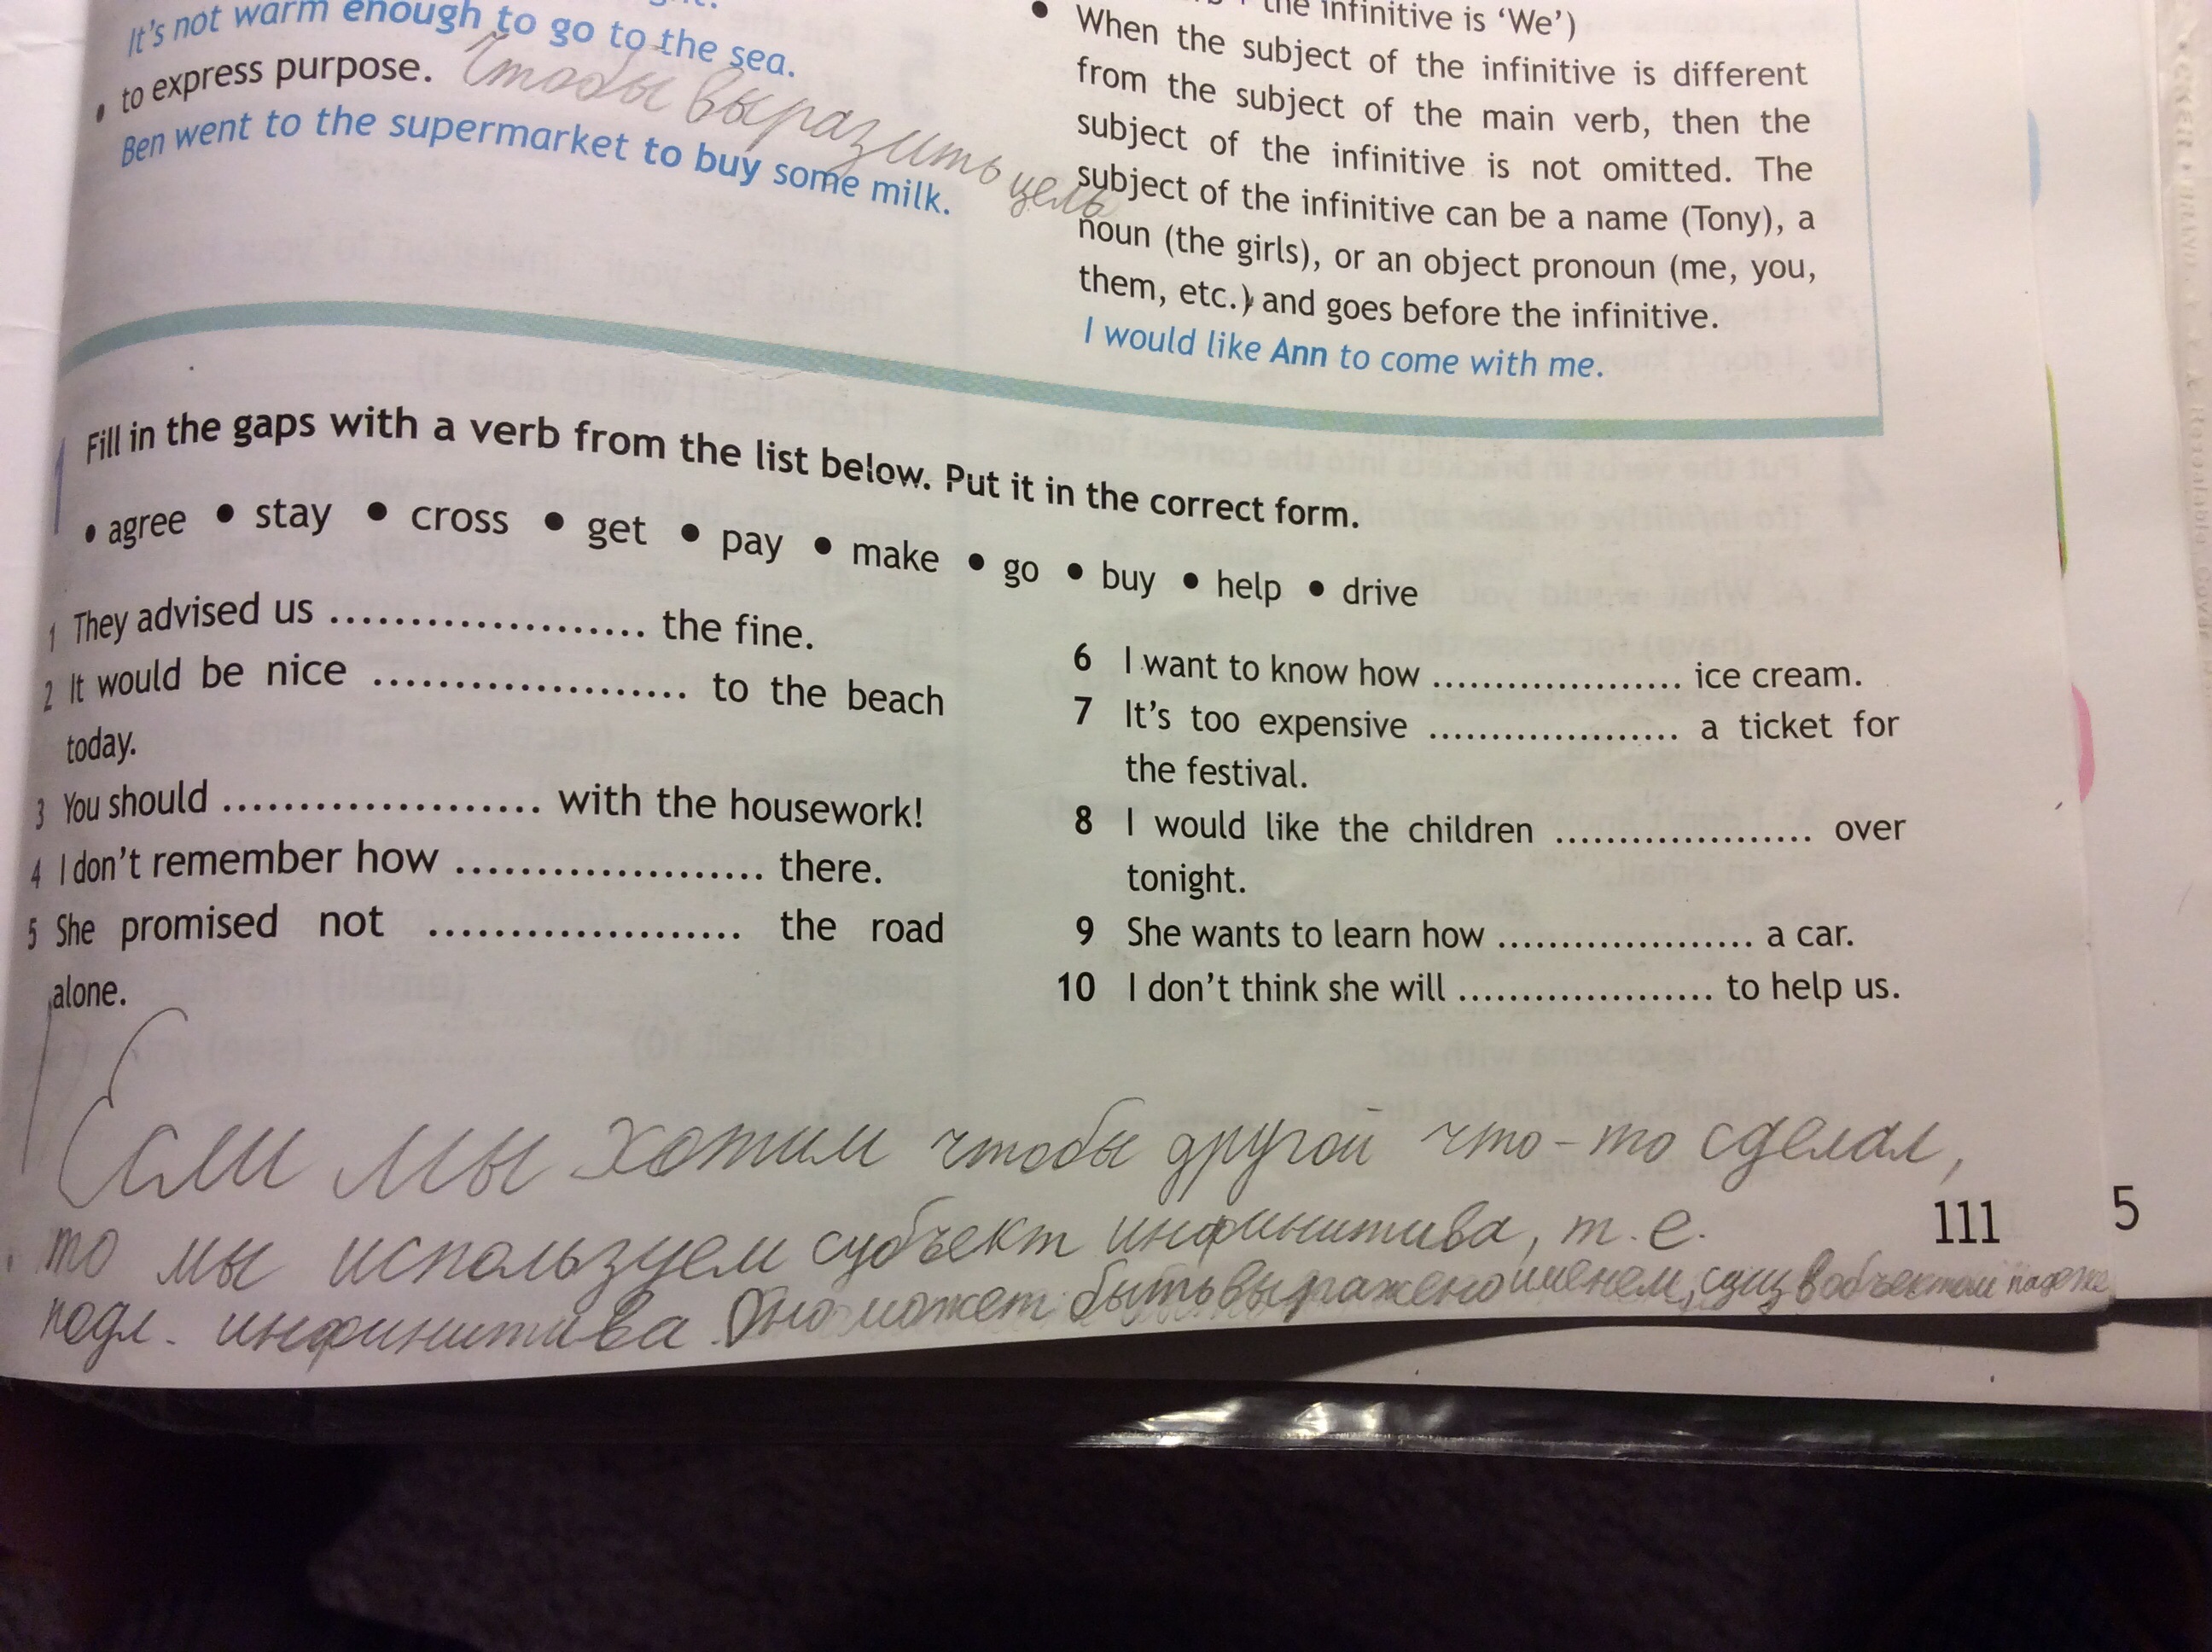 It's not warm enough to go to the sea.
• to express purpose. Чтобы выразить цель
Ben went to the supermarket to buy some milk.
the infinitive is ‘We’)
• When the subject of the infinitive is different
from the subject of the main verb, then the
subject of the infinitive is not omitted. The
subject of the infinitive can be a name (Tony), a
noun (the girls), or an object pronoun (me, you,
them, etc.) and goes before the infinitive.
I would like Ann to come with me.
1 Fill in the gaps with a verb from the list below. Put it in the correct form.
• agree • stay • cross • get • pay • make • go • buy • help • drive
1 They advised us .................... the fine.
2 It would be nice .................... to the beach
today.
3 You should .................... with the housework!
4 I don't remember how .................... there.
5 She promised not .................... the road
alone.
6 I want to know how .................... ice cream.
7 It's too expensive .................... a ticket for
the festival.
8 I would like the children .................... over
tonight.
9 She wants to learn how .................... a car.
10 I don't think she will .................... to help us.
Если мы хотим чтобы другой что-то сделал,
то мы используем субъект инфинитива, т.е.
подл. инфинитива. Оно может быть выражено именем, сущ в объектом падеже
111
5